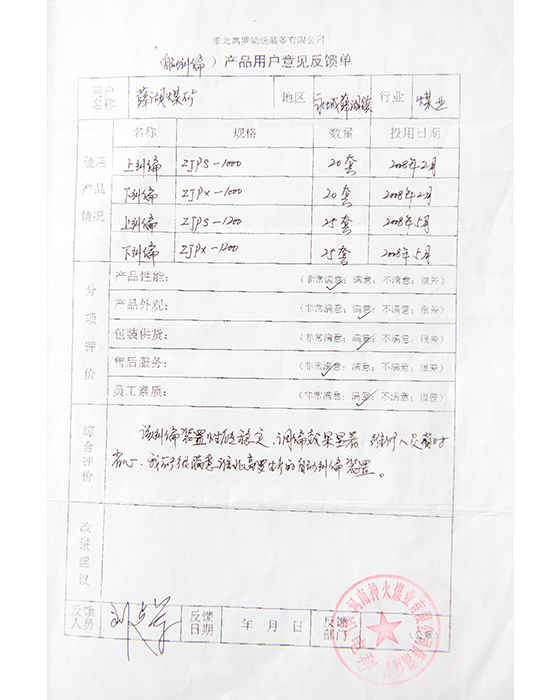 淮北高萝输送装备有限公司
产品用户意见反馈单
用户名称 薛湖煤矿 地区 永城薛湖镇 行业 煤业
使用产品情况 名称 规格 数量 投用日期
上纠偏 ZJPS-1000 20套 2008年2月
下纠偏 ZJPX-1000 20套 2008年2月
上纠偏 ZJPS-1200 25套 2008年5月
下纠偏 ZJPX-1200 25套 2008年5月
分项评价
产品性能: (非常满意; 满意; 不满意; 很差)
产品外观: (非常满意; 满意; 不满意; 很差)
包装供货: (非常满意; 满意; 不满意; 很差)
售后服务: (非常满意; 满意; 不满意; 很差)
员工素质: (非常满意; 满意; 不满意; 很差)
综合评价
该纠偏装置性能稳定、调偏效果显著、维修人员省时
省心、我矿很满意淮北高萝生产的自动纠偏装置。
改进建议
反馈人员 反馈日期 年 月 日 反馈部门 (公章)
河南神火煤业有限公司